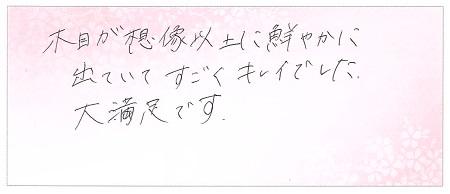 木目が想像以上に鮮やかに
出ていて すごく キレイでした.
大満足です.